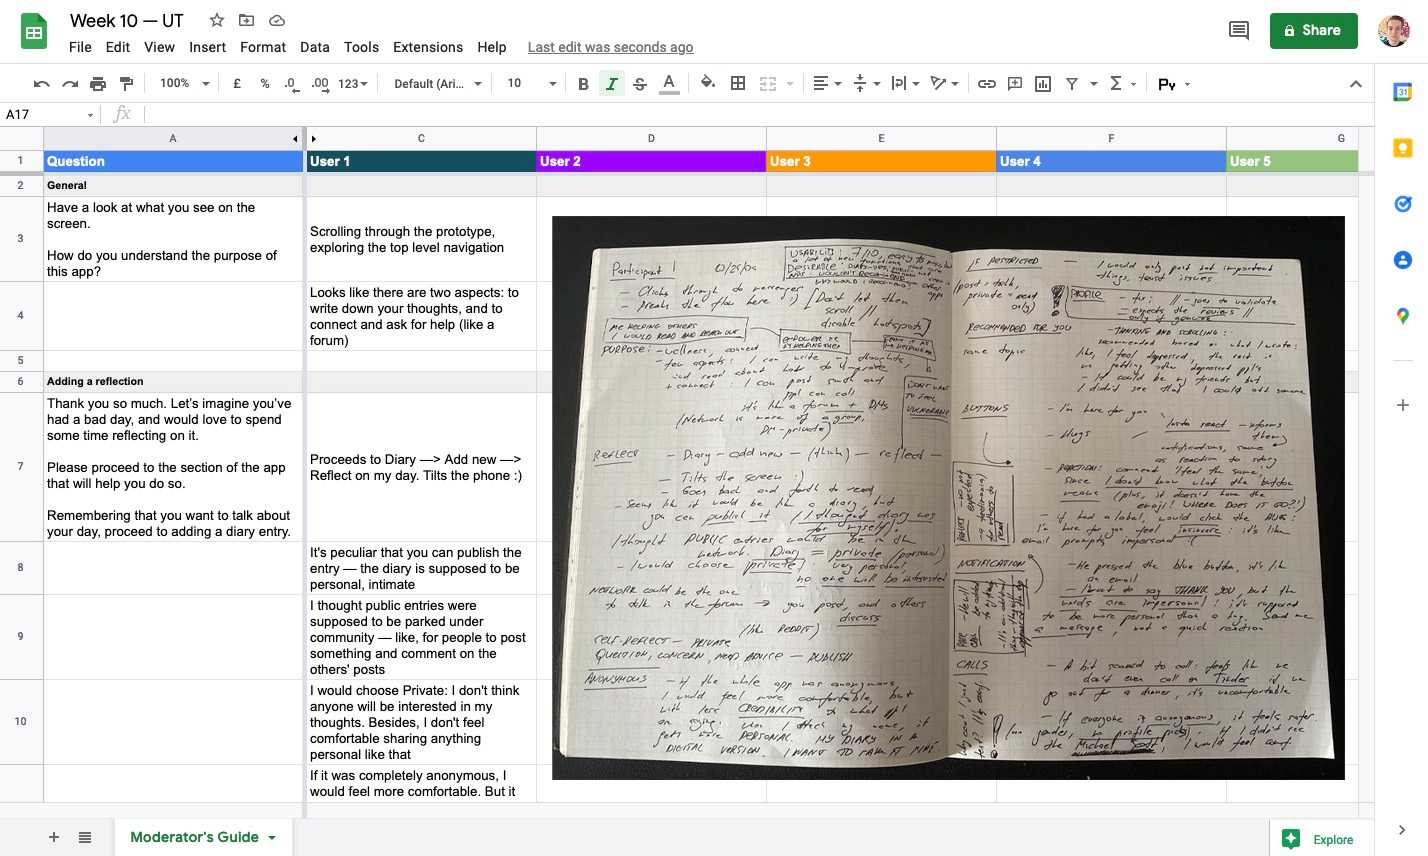 Week 10 — UT
File Edit View Insert Format Data Tools Extensions Help Last edit was seconds ago
Share
100% £ % .0 .00 123 Default (Ari... 10 B I S A
A17 fx
A C D E F G
1 Question User 1 User 2 User 3 User 4 User 5
2 General
3
Have a look at what you see on the
screen.
How do you understand the purpose of
this app?
Scrolling through the prototype,
exploring the top level navigation
4
Looks like there are two aspects: to
write down your thoughts, and to
connect and ask for help (like a
forum)
5
6 Adding a reflection
7
Thank you so much. Let's imagine you've
had a bad day, and would love to spend
some time reflecting on it.
Please proceed to the section of the app
that will help you do so.
Remembering that you want to talk about
your day, proceed to adding a diary entry.
Proceeds to Diary —> Add new —>
Reflect on my day. Tilts the phone :)
8
It's peculiar that you can publish the
entry — the diary is supposed to be
personal, intimate
9
I thought public entries were
supposed to be parked under
community — like, for people to post
something and comment on the
others' posts
10
I would choose Private: I don't think
anyone will be interested in my
thoughts. Besides, I don't feel
comfortable sharing anything
personal like that
If it was completely anonymous, I
would feel more comfortable. But it
Participant 1
USABILITY: 7/10
- Clicks through to messenger
- Breaks the flow here :) [Don't let them
scroll //
disable hotspots]
ME HELPING OTHERS
I WOULD READ AND
PURPOSE: - wellness, connect
- two aspects: I can write my thoughts,
and read about how to
+ connect: I can post such and
ppl can call
It's like a forum + DMs
(Network is more of a group,
DM - private)
DON'T WANT
TO FEEL
VULNERABLE
REFLECT - Diary - add new - (think) - reflect -
- Tilts the screen :)
- Goes back and forth to read
- Seems like it would be like a diary, but
you can publish it // I thought diary was
for myself!
I thought PUBLIC entries would be in the
network. Diary = private (personal)
- I would choose private: very personal,
no one will be interested
NETWORK could be the one
to talk in the forum → you post, and others
discuss
(like REDDIT)
SELF-REFLECT - PRIVATE
QUESTION, CONCERN, NEED ADVICE - PUBLISH
ANONYMOUS - if the whole app was anonymous
I would feel more comfortable, but
with less CREDIBILITY to what ppl
are saying. When I attach my name, it
gets more PERSONAL. MY DIARY IN A
DIGITAL VERSION. I WANT TO MAKE IT MINE
IF RESTRICTED - I would only post not important
things, trust issues
(post + talk,
private - read
only)
PROFILE
- goes to validate
- expects the reviews //
RECOMMENDED FOR YOU - THINKING AND SCROLLING:
recommended based on what I wrote:
same topic
like, I feel depressed, the rest is
- It could be my friends but
I didn't see that I could add someone
BUTTONS - I'm here for you
- Hugs
- REACTION: comment "feel the same",
since I don't know what the button
means (plus, it doesn't have the
emoji! WHERE DOES IT GO?!)
- if had a label, would click the HUG:
I'm here for you feel insincere: it's like
email prompts, impersonal :(
NOTIFICATION - He pressed the blue button, it's like
an email
- I want to say THANK YOU, but the
words are impersonal: it's supposed
to be more personal than a hug. Send me
a message, not a quick reaction
CALLS - A bit scared to call: feels like we
don't even call on Tinder if we
go out for a dinner, it's uncomfortable
- If everyone is anonymous, it feels safer.
(no gender, no profile pics). If I didn't see
the Michael Scott, I would feel
Moderator's Guide
Explore
31